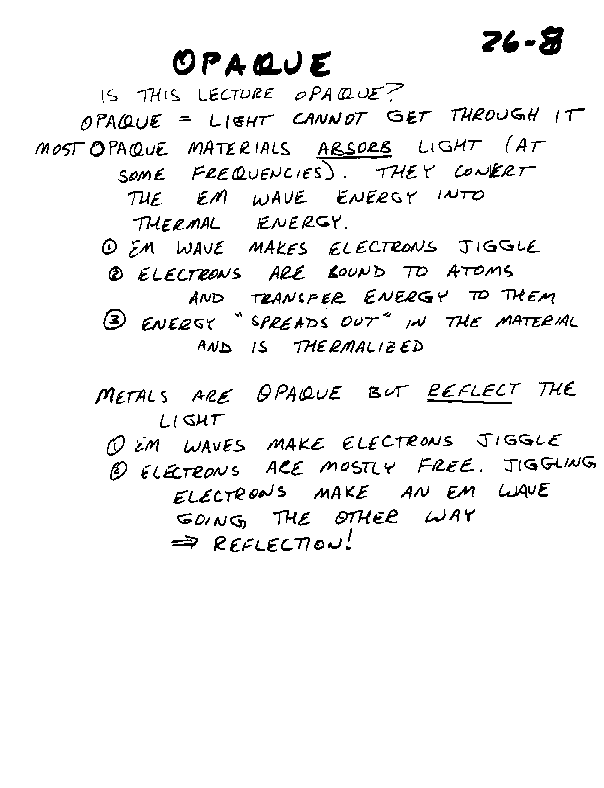 26-8
OPAQUE
IS THIS LECTURE OPAQUE?
OPAQUE = LIGHT CANNOT GET THROUGH IT
MOST OPAQUE MATERIALS ABSORB LIGHT (AT
SOME FREQUENCIES). THEY CONVERT
THE EM WAVE ENERGY INTO
THERMAL ENERGY.
① EM WAVE MAKES ELECTRONS JIGGLE
② ELECTRONS ARE BOUND TO ATOMS
AND TRANSFER ENERGY TO THEM
③ ENERGY "SPREADS OUT" IN THE MATERIAL
AND IS THERMALIZED
METALS ARE OPAQUE BUT REFLECT THE
LIGHT
① EM WAVES MAKE ELECTRONS JIGGLE
② ELECTRONS ARE MOSTLY FREE. JIGGLING
ELECTRONS MAKE AN EM WAVE
GOING THE OTHER WAY
⇒ REFLECTION!